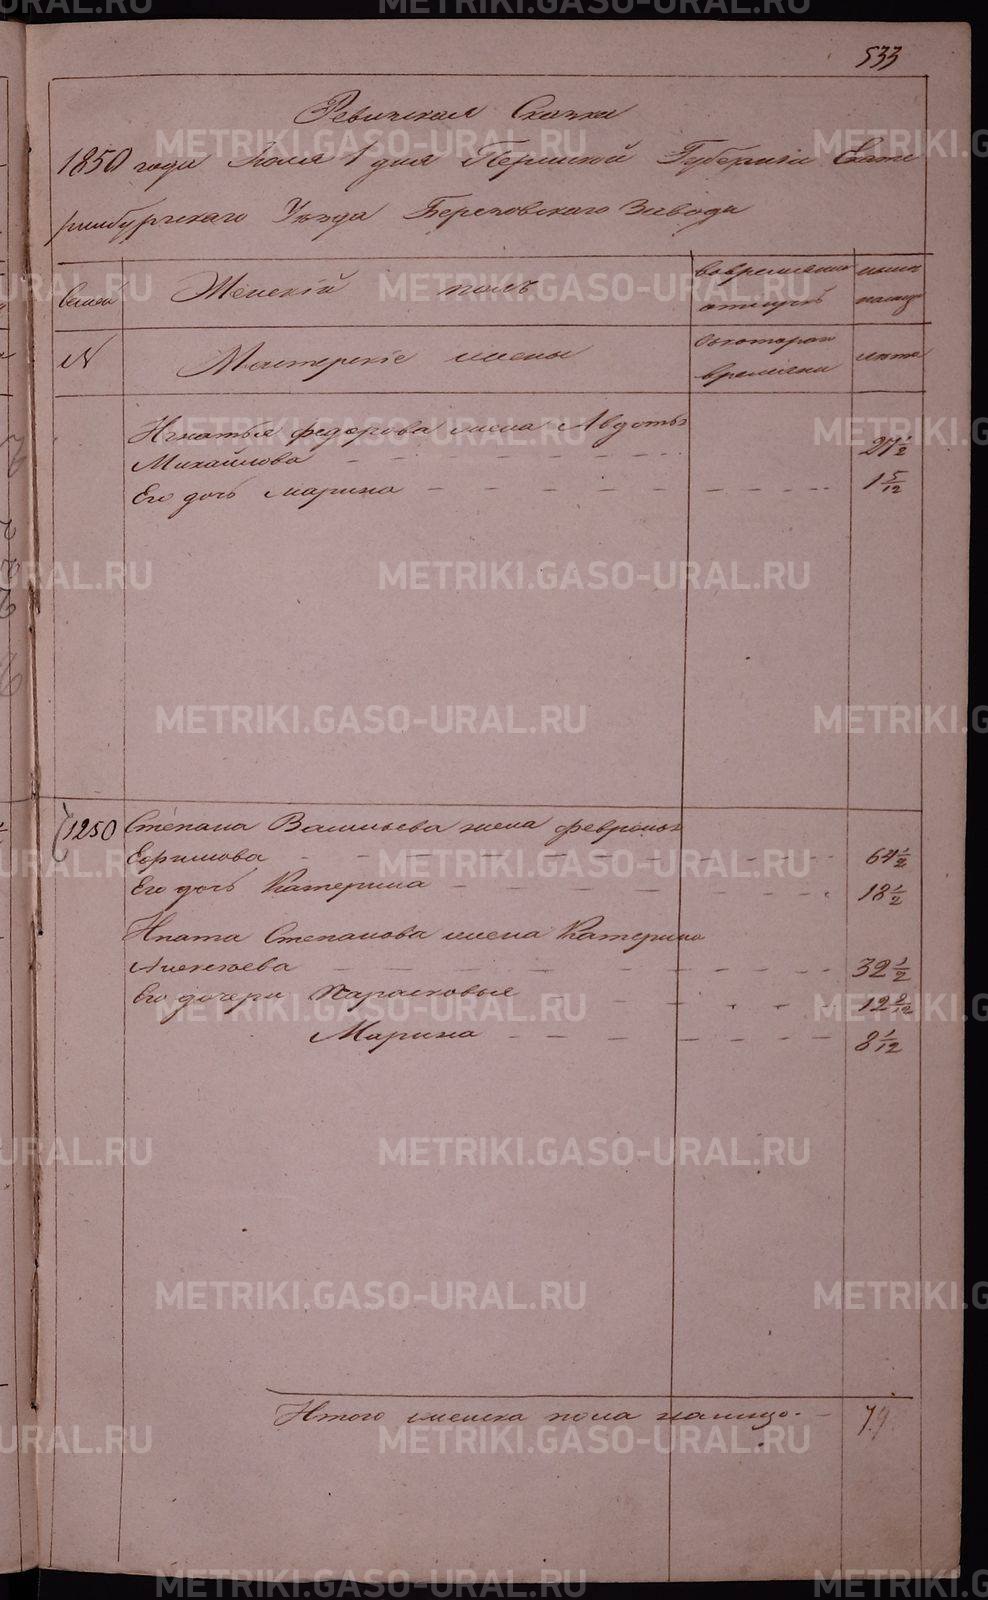 533
Ревизская Сказка
1850 года Июля 1 дня Пермской Губернiи Екате
ринбургскаго Уѣзда Березовскаго Завода
Семей Женскiй полъ во временно отлучкѣ ныне налицо
N Мастерскiе жены съ котораго времяни лѣта
Игнатья федорова жена Авдотья
Михайлова 27 1/2
Его дочь Марина 1 5/12
1250 Степана Васильева жена февронья
Ефимова 67 1/2
Его дочь Катерина 18 1/2
Ипата Степанова жена Катерина
Алексѣева 32 1/2
Его дочери Парасковья 12 8/12
Марина 8 1/12
Итого женска пола налицо 7
METRIKI.GASO-URAL.RU